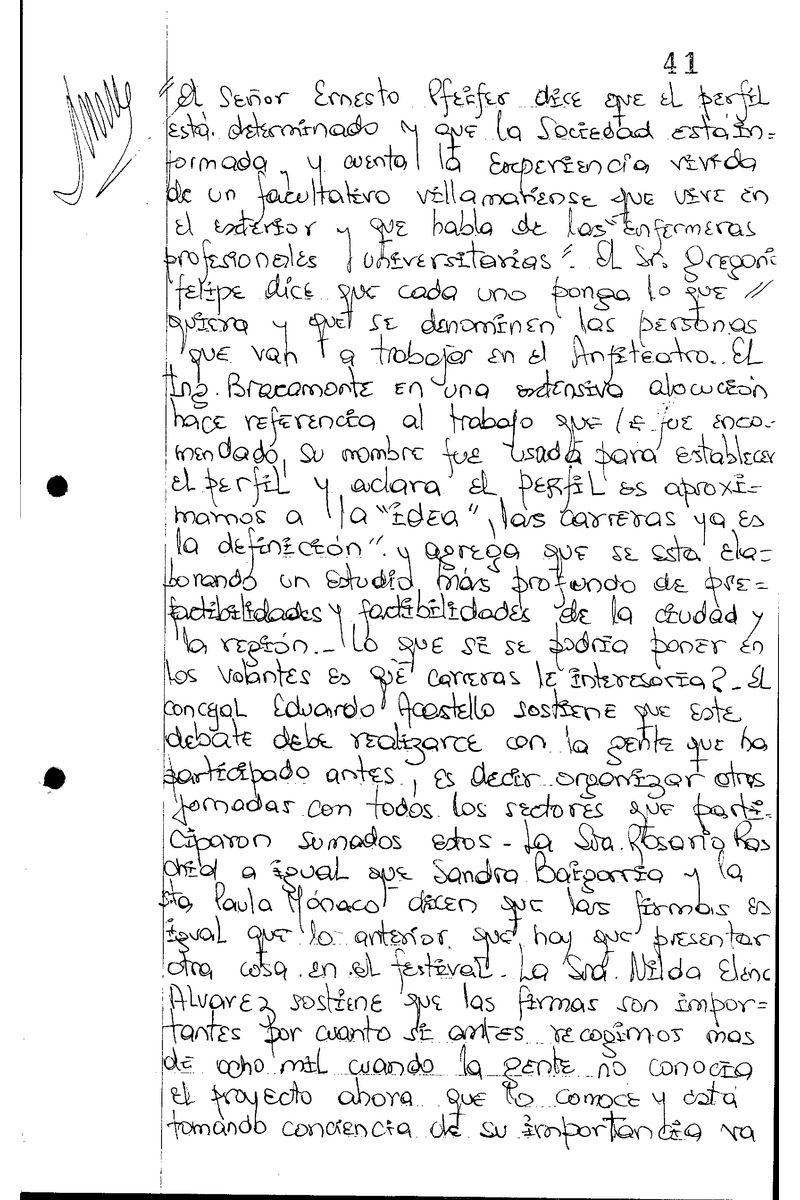 41
"El Señor Ernesto Pfeifer dice que el perfil
está determinado y que la Sociedad está in=
formada, y cuenta la experiencia vivida
de un facultativo villamariense que vive en
el exterior y que habla de las "enfermeras
profesionales universitarias". El Sr. Gregori
felipe dice que cada uno ponga lo que //
quiera y que se denominen las personas
que van a trabajar en el Anfiteatro. El
Ing. Bracamonte en una extensiva alocución
hace referencia al trabajo que le fue enco-
mendado, su nombre fue usada para establecer
el perfil y aclara el PERfil es aproxi=
marnos a la "idea", las carreras ya es
la definición". y agrega que se esta ela=
borando un estudio más profundo de pre=
factibilidades y factibilidades de la ciudad y
la región.- lo que si se podría poner en
los volantes es qué carreras le interesaría?- El
concejal Eduardo Acastello sostiene que este
debate debe realizarce con la gente que ha
participado antes, es decir organizar otras
jornadas con todos los sectores que parti-
ciparon sumados estos - La Sra. Rosario Ras
child a igual que Sandra Baigorria y la
Sta Paula Mónaco dicen que las firmas es
igual que lo anterior, que hay que presentar
otra cosa en el festival. La Sra. Nilda Elena
Alvarez sostiene que las firmas son impor=
tantes por cuanto si antes recogimos mas
de ocho mil cuando la gente no conocía
el proyecto ahora que lo conoce y está
tomando conciencia de su importancia va